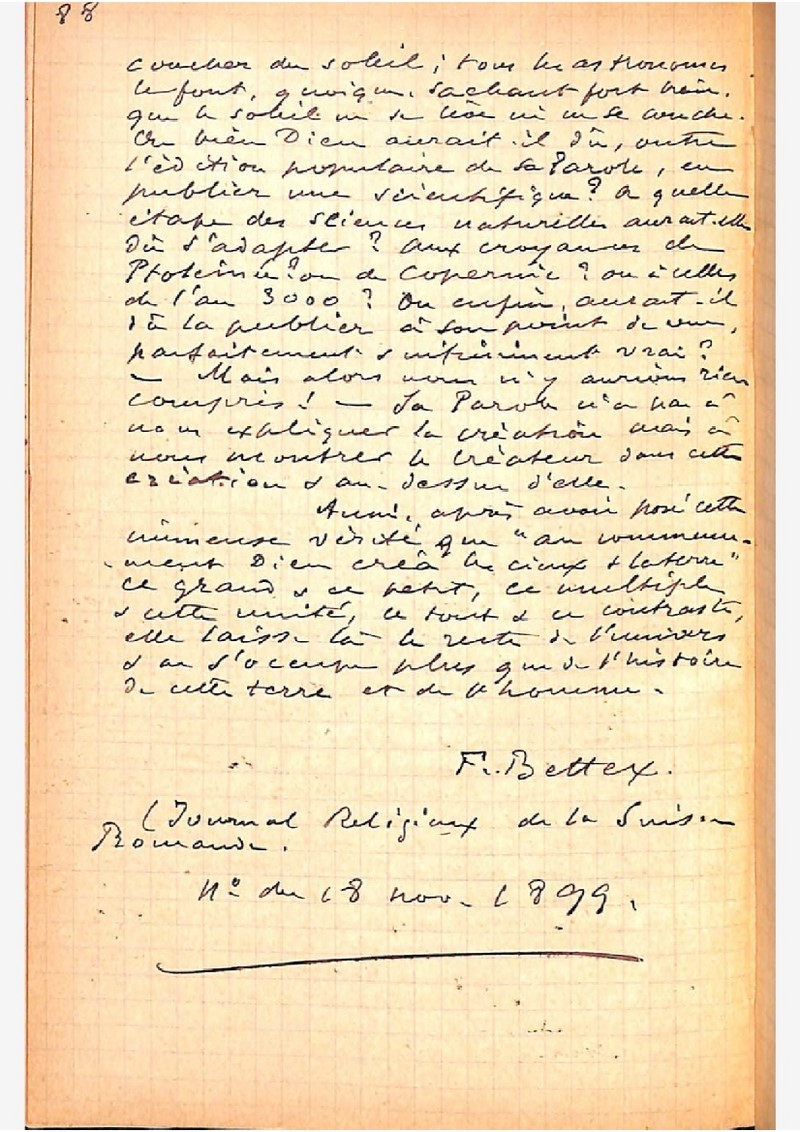 88
coucher du soleil; tous les astronomes
le font, quoique sachant fort bien,
que le soleil ne se lève ni ne se couche.
Ou bien Dieu aurait-il dû, outre
l'édition populaire de sa Parole, en
publier une scientifique? A quelle
étape des sciences naturelles aurait-elle
dû s'adapter? Aux croyances de
Ptolémée? ou de Copernic? ou à celles
de l'an 3000? Ou enfin, aurait-il
dû la publier à son point de vue,
parfaitement & infiniment vrai?
— Mais alors nous n'y aurions rien
compris! — La Parole n'a pas à
nous expliquer la création mais à
nous montrer le Créateur dans cette
création & au-dessus d'elle.
Aussi, après avoir posé cette
immense vérité que "au commen-
-ment Dieu créa les cieux & la terre"
ce grand & ce petit, ce multiple
& cette unité, ce tout & ce contraste,
elle laisse là le reste de l'univers
& ne s'occupe plus que de l'histoire
de cette terre et de l'homme.
Fr. Bettex.
(Journal Religieux de la Suisse
Romande.
No du 18 nov. 1899.